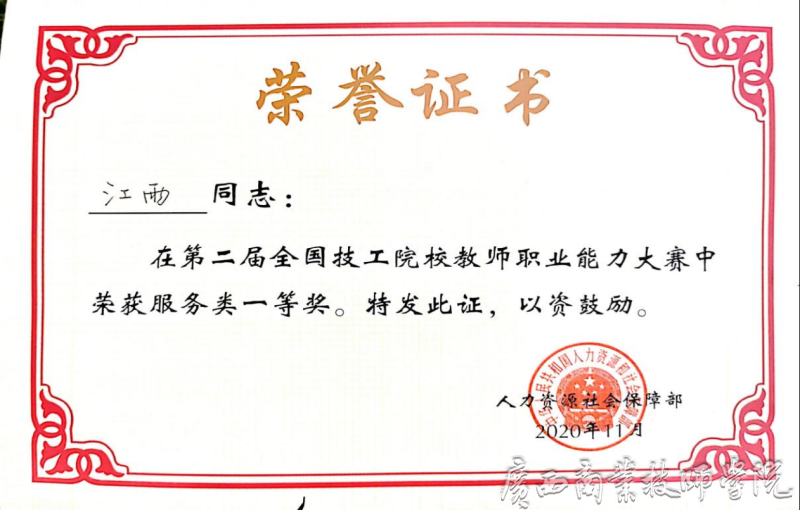 荣誉证书
江西 同志:
在第二届全国技工院校教师职业能力大赛中
荣获服务类一等奖。特发此证,以资鼓励。
中华人民共和国人力资源和社会保障部
人力资源社会保障部
2020年11月
廣西商業技師學院